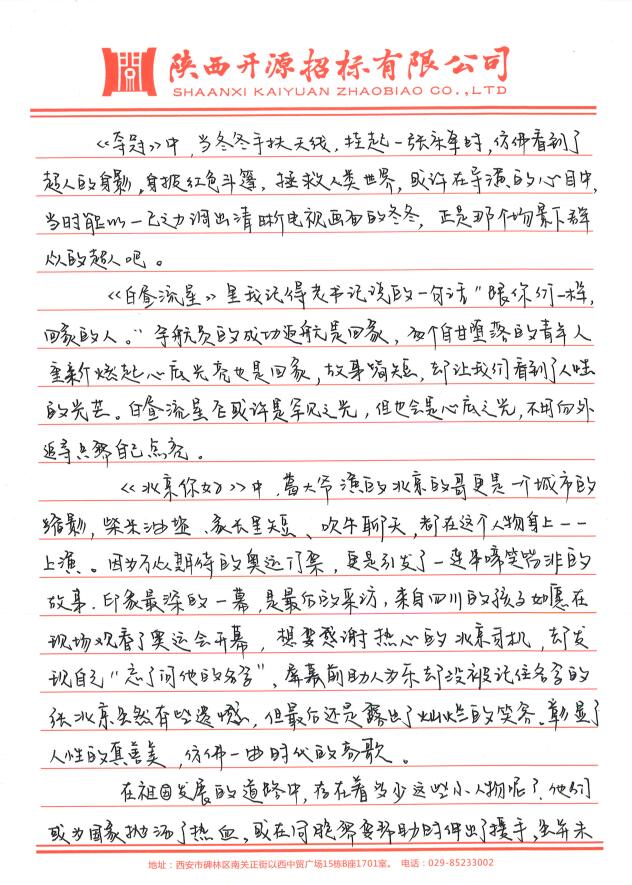 陕西开源招标有限公司
SHAANXI KAIYUAN ZHAOBIAO CO.,LTD
《夺冠》中，当冬冬手扶天线，挂起一张床单时，仿佛看到了
超人的身影，身披红色斗篷，拯救人类世界，或许在导演的心目中，
当时能以一己之力调出清晰电视画面的冬冬，正是那个场景下群
众的超人吧。
《白昼流星》里我记得老书记说的一句话"跟你们一样，
回家的人。"宇航员的成功返航是回家，两个自甘堕落的青年人
重新燃起心底光亮也是回家，故事简短，却让我们看到了人性
的光芒。白昼流星或许是罕见之光，但也会是心底之光，不用向外
追寻只需自己点亮。
《北京你好》中，葛大爷演的北京的哥更是一个城市的
缩影，柴米油盐、家长里短、吹牛聊天，都在这个人物身上一一
上演。因为不众期待的奥运门票，更是引发了一连串啼笑皆非的
故事.印象最深的一幕，是最后的采访，来自四川的孩子如愿在
现场观看了奥运会开幕，想要感谢热心的北京司机，却发
现自己"忘了问他的名字"，屏幕前助人为乐却没被记住名字的
张北京虽然有些遗憾，但最后还是露出了灿烂的笑容.彰显了
人性的真善美，仿佛一曲时代的高歌。
在祖国发展的道路中，存在着多少这些小人物呢？他们
或为国家抛洒了热血，或在同胞需要帮助时伸出了援手，坐年未
地址：西安市碑林区南关正街以西中贸广场15栋B座1701室。 电话：029-85233002